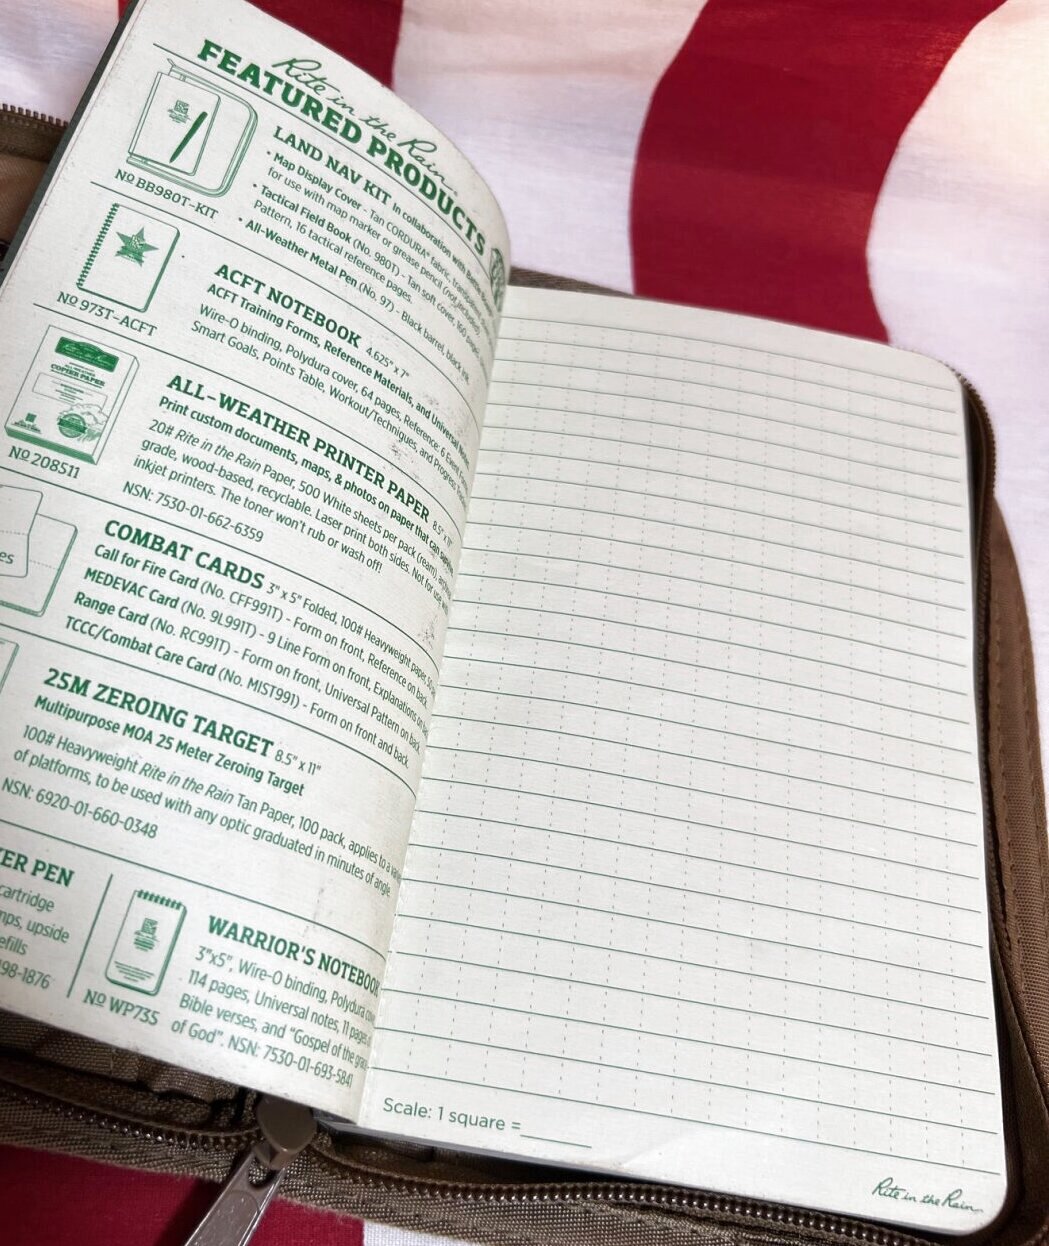 Rite in the Rain
FEATURED PRODUCTS
LAND NAV KIT In collaboration with
• Map Display Cover - Tan CORDURA® fabric, transparent
for use with map marker or grease pencil (not included)
• Tactical Field Book (No. 980T) - Tan soft cover, 160 pages,
Pattern, 16 tactical reference pages.
• All-Weather Metal Pen (No. 97) - Black barrel, black ink.
Nº BB980T-KIT
ACFT NOTEBOOK 4.625" x 7"
ACFT Training Forms, Reference Materials, and Universal
Wire-O binding, Polydura cover, 64 pages, Reference: 6 Event
Smart Goals, Points Table, Workout/Techniques, and Progress
Nº 973T-ACFT
ALL-WEATHER PRINTER PAPER 8.5" x 11"
Print custom documents, maps, & photos on paper that can
20# Rite in the Rain Paper, 500 White sheets per pack (ream),
grade, wood-based, recyclable. Laser print both sides. Not for use
inkjet printers. The toner won't rub or wash off!
NSN: 7530-01-662-6359
Rite in the Rain
COPIER PAPER
Nº 208511
COMBAT CARDS 3" x 5" Folded, 100# Heavyweight paper, 50
Call for Fire Card (No. CFF991T) - Form on front, Reference on back.
MEDEVAC Card (No. 9L991T) - 9 Line Form on front, Explanations on
Range Card (No. RC991T) - Form on front, Universal Pattern on back.
TCCC/Combat Care Card (No. MIST991) - Form on front and back.
es
25M ZEROING TARGET 8.5" x 11"
Multipurpose MOA 25 Meter Zeroing Target
100# Heavyweight Rite in the Rain Tan Paper, 100 pack, applies to a
of platforms, to be used with any optic graduated in minutes of angle.
NSN: 6920-01-660-0348
ER PEN
cartridge
mps, upside
efills
98-1876
Nº WP735
WARRIOR'S NOTEBOOK
3"x5", Wire-O binding, Polydura
114 pages, Universal notes, 11 pages
Bible verses, and "Gospel of the
of God". NSN: 7530-01-693-5841
Scale: 1 square =
Rite in the Rain